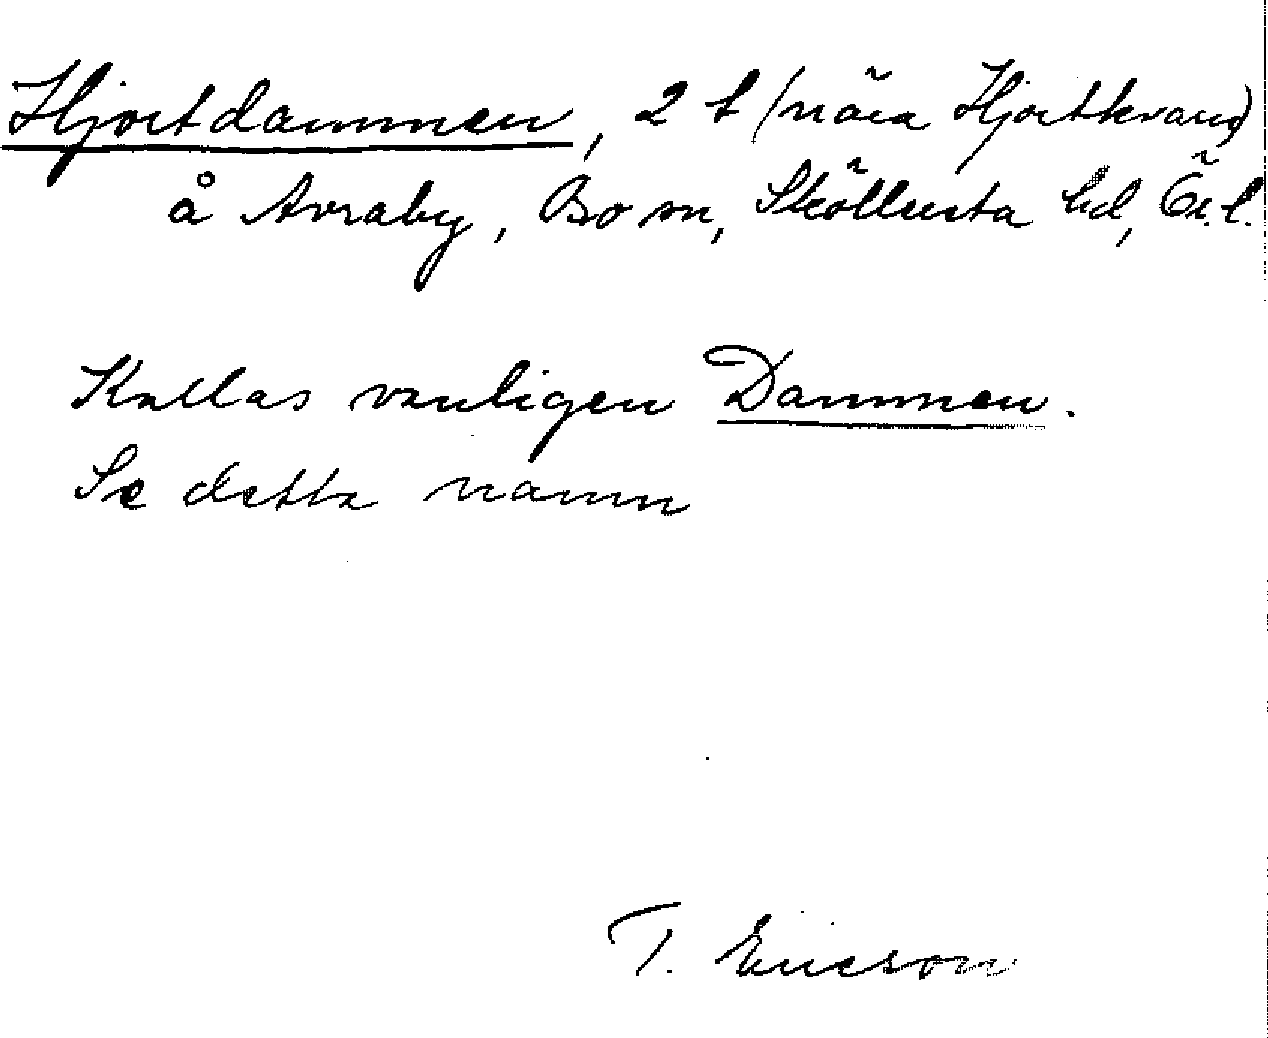 Hjortdammen, 2 t (nära Hjortkvarn)
å Avraby, Bo sn, Sköllersta hd, Ör.l.
Kallas vanligen Dammen.
Se detta namn
T. Ericson